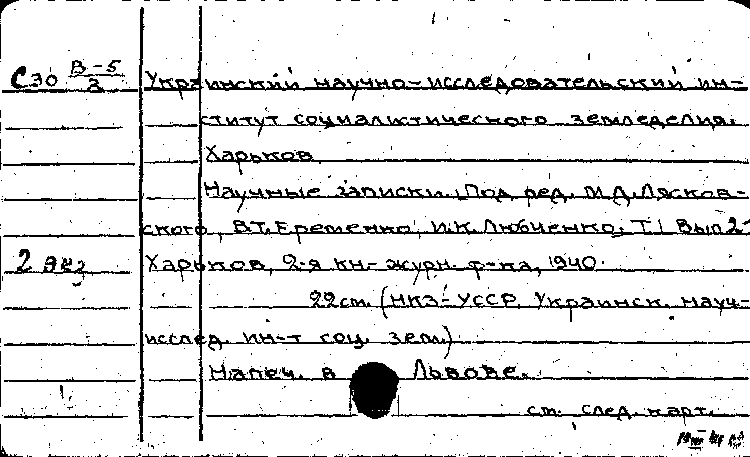 С30 В-5/3 Украинский научно-исследовательский ин-
ститут социалистического земледелия.
Харьков
Научные записки. Под ред. М.Д. Лясков-
ского, В.Т. Еременко, И.К. Любченко, Т.1 Вып 2-
2 экз Харьков, 2-я кн-журн. ф-ка, 1940.
22 см. (НКЗ-УССР, Украинск. науч-
исслед. ин-т соц. зем.)
Напеч. в Львове.
см. след. карт.